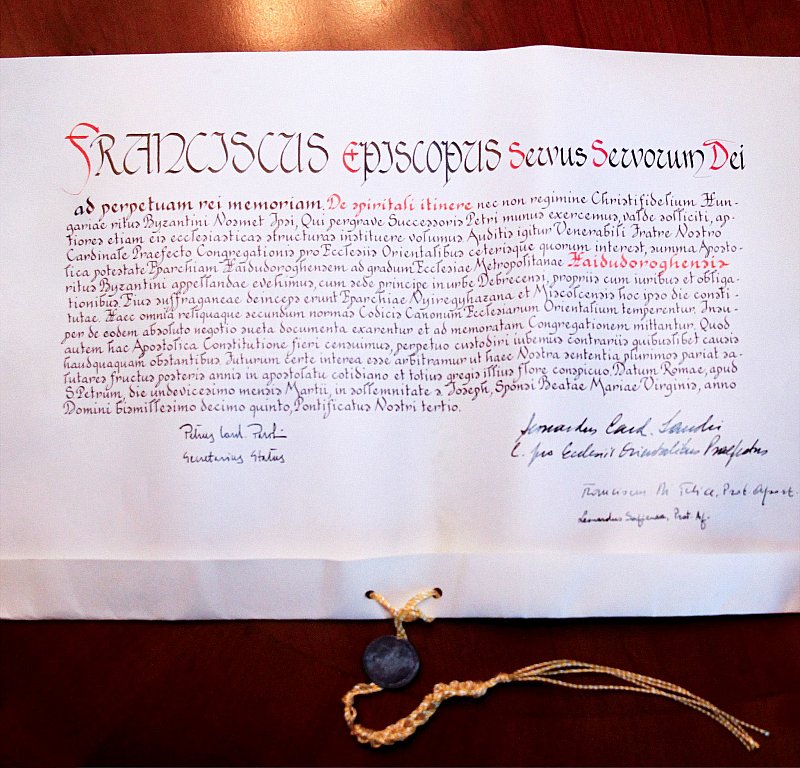 FRANCISCUS EPISCOPUS Servus Servorum Dei
ad perpetuam rei memoriam. De spiritali itinere nec non regimine Christifidelium Hun-
gariae ritus Byzantini Nosmet Ipsi, Qui pergrave Successoris Petri munus exercemus, valde solliciti, ap-
tiores etiam eis ecclesiasticas structuras instituere volumus. Auditis igitur Venerabili Fratre Nostro
Cardinale Praefecto Congregationis pro Ecclesiis Orientalibus ceterisque quorum interest, summa Aposto-
lica potestate Eparchiam Haidudoroghensem ad gradum Ecclesiae Metropolitanae Haidudoroghensis
ritus Byzantini appellandae evehimus, cum sede principe in urbe Debrecensi, propriis cum iuribus et obliga-
tionibus. Eius suffraganeae deinceps erunt Eparchiae Nyiregyhazana et Miscolcensis hoc ipso die consti-
tutae. Haec omnia reliquaque secundum normas Codicis Canonum Ecclesiarum Orientalium temperentur. Insu-
per de eodem absoluto negotio sueta documenta exarentur et ad memoratam Congregationem mittantur. Quod
autem hac Apostolica Constitutione fieri censuimus, perpetuo custodiri iubemus contrariis quibuslibet causis
haudquaquam obstantibus. Futurum certe interea esse arbitramur ut haec Nostra sententia plurimos pariat sa-
lutares fructus posteris annis in apostolatu cotidiano et totius gregis illius flore conspicuo. Datum Romae, apud
S. Petrum, die undevicesimo mensis Martii, in sollemnitate s. Joseph, Sponsi Beatae Mariae Virginis, anno
Domini bismillesimo decimo quinto, Pontificatus Nostri tertio.
Petrus Card. Parolin
Secretarius Status
Leonardus Card. Sandri
C. pro Ecclesiis Orientalibus Praefectus
Franciscus Di Felice, Prot. Apost.
Leonardus Sapienza, Prot. Ap.